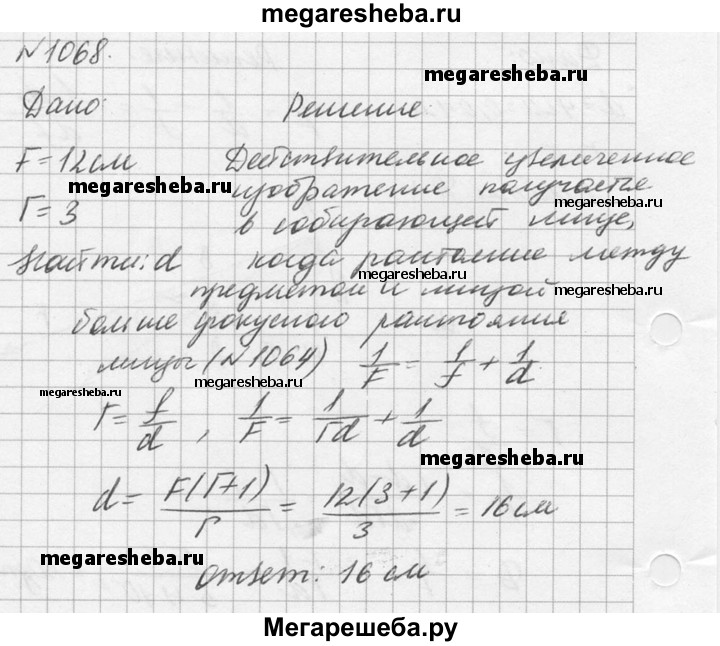 megaresheba.ru
№1068.
megaresheba.ru
Дано: Решение:
F = 12 см Действительное увеличенное
megaresheba.ru изображение получается
Г = 3 в собирающей линзе, megaresheba.ru
Найти: d когда расстояние между
megaresheba.ru
предметом и линзой megaresheba.ru
больше фокусного расстояния
линзы (№1064) 1/F = 1/f + 1/d
megaresheba.ru megaresheba.ru
Г = f/d , 1/F = 1/Гd + 1/d
megaresheba.ru
d = F(Г+1)/Г = 12(3+1)/3 = 16 см
megaresheba.ru
Ответ: 16 см
megaresheba.ru
Мегарешеба.ру